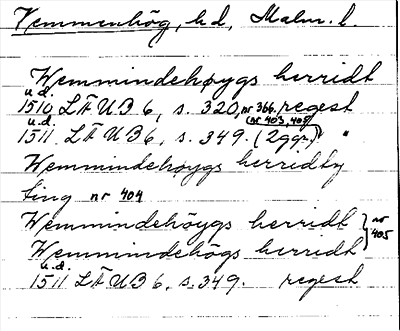 Vemmenhög, hd, Malm. l.
Wemmindehøygs herridt
u.d.
1510 LÄUB 6, s. 320, nr 366. regest
u.d. (nr 403, 405)
1511. LÄUB 6, s. 349. (2ggr) "
Wemmindehøygs herridtz
ting nr 404
Wemmindehöygs herridt } nr
Wemmindehögs herridt } 405
u.d.
1511 LÄUB 6, s. 349. regest